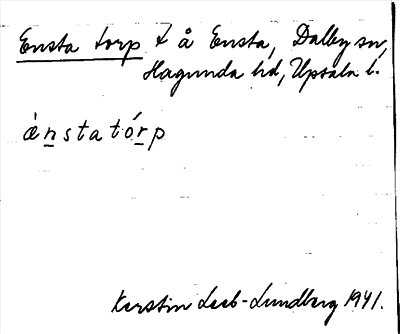 Ensta torp t å Ensta, Dalby sn,
Hagunda hd, Upsala l.
ànstatórp
Kerstin Leeb-Lundberg 1941.